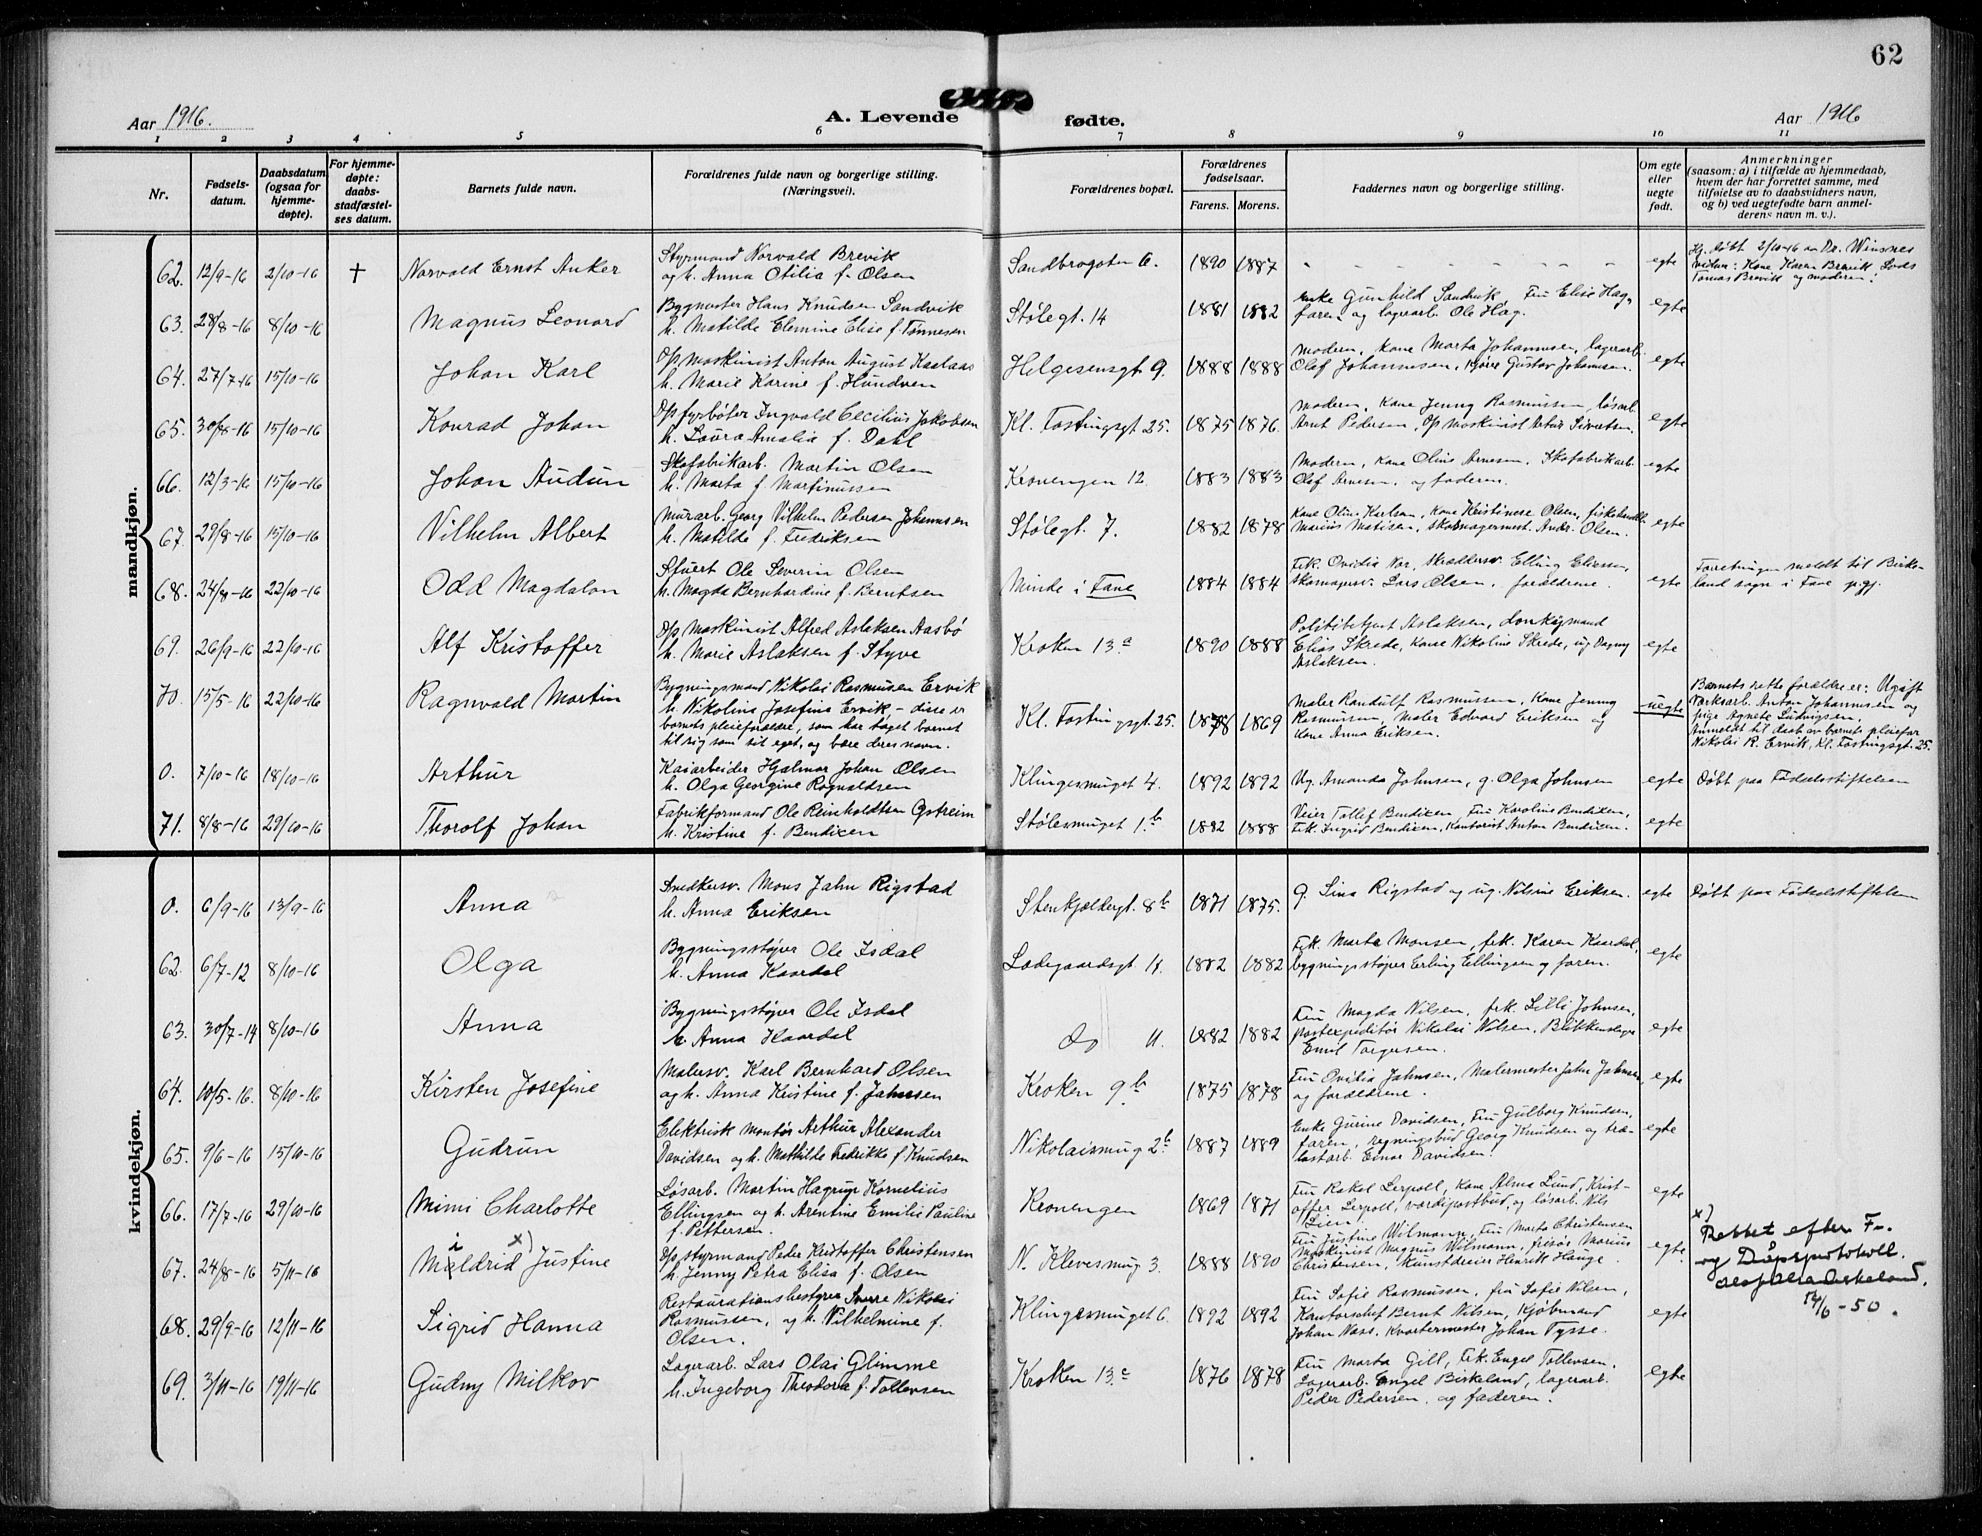 62
Aar 1916.
A. Levende fødte.
Aar 1916
1 2 3 4 5 6 7 8 9 10 11
Nr.
Fødsels-
datum.
Daabsdatum
(ogsaa for
hjemme-
døpte).
For hjemme-
døpte:
daabs-
stadfæstel-
ses datum.
Barnets fulde navn.
Forældrenes fulde navn og borgerlige stilling.
(Næringsvei).
Forældrenes bopæl.
Forældrenes
fødselsaar.
Farens. Morens.
Faddernes navn og borgerlige stilling.
Om egte
eller
uegte
født.
Anmerkninger
(saasom: a) i tilfælde av hjemmedaab,
hvem der har forrettet samme, med
tilføielse av to daabsvidners navn,
og b) ved uegtefødte barn anmel-
derens navn m. v.).
mandkjøn.
62. 12/9-16 2/10-16 † Norvald Ernst Anker
Styrmand Norvald Brevik
og h. Anna Otilia f. Olsen
Sandbrogaten 6. 1890 1887 egte
Hj. døbt 2/10-16 av Dr. Winsnes
vidne: Kone Karen Brevik, Lods
Tomas Brevik og moderen.
63. 28/8-16 8/10-16 Magnus Leonard
Bygmester Hans Knudsen Sandvik
h. Matilde Elemine Elise f. Tønnesen
Stølegt. 14 1881 1882
Enke Gunhild Sandvik, Fru Elise Hag,
faren og lagerarb. Ole Hag.
egte
64. 27/7-16 15/10-16 Johan Karl
Op maskinist Anton August Kaalaas
h. Marie Karine f. Hundven
Helgesensgt 9. 1888 1888
Modern, Kone Marta Johannesen, lagerarb.
Olaf Johannesen, Kjører Gustav Johannesen.
egte
65. 30/8-16 15/10-16 Konrad Johan
Op fyrbøter Ingvald Cecilius Jakobsen
h. Laura Amalia f. Dahl
Kl. Tostingsgt 25. 1875 1876
Modern, Kone Jenny Rasmussen, løsarb.
Arnt Pedersen, Op maskinist Artur Sivertsen.
egte
66. 12/3-16 15/10-16 Johan Audun
Skofabrikarb. Martin Olsen
h. Marta f. Martinussen
Kronengen 12. 1883 1883
Modern, Kone Olina Arnesen. Skofabrikarb.
Olaf Arnesen. og faderen.
egte
67. 29/8-16 15/10-16 Vilhelm Albert
Murarb. Georg Vilhelm Pedersen Johannsen
h. Matilde f. Fredriksen
Stølegt. 7. 1882 1878
Kone Olina Karlsen, Kone Kristinese Olsen, fiskehandl.
Marius Matisen, skomagermest. Andr. Olsen.
egte
68. 24/8-16 22/10-16 Odd Magdalon
Stuert Ole Severin Olsen
h. Magda Bernhardine f. Berntsen
Minde i Fane 1884 1884
Frk. Ovidia Kor, Skræddersv. Elling Eliesen,
skomagersv. Lars Olsen, forældrene.
egte
Forretningen meldt til Birke-
land sogn i Fane pgj.
69. 26/9-16 22/10-16 Alf Kristoffer
Op Maskinist Alfred Aslaksen Aasbø
h. Marie Aslaksen f. Styve
Kroken 13a 1890 1888
Politibetjent Aslaksen, donkeymand
Elias Skrede, Kone Nikoline Skrede, ug Dagny
Aslaksen.
egte
70. 15/5-16 22/10-16 Ragnvald Martin
Bygningsmand Nikolai Rasmusen Ervik
h. Nikolina Josefine Ervik – disse er
barnets pleieforældre, som har taget barnet
til sig som sit eget, og bære deres navn.
Kl. Tostingsgt. 25. 1878 1869
Maler Randulf Rasmussen, Kone Jenny
Rasmussen, Maler Edvard Eriksen og
Kone Anna Eriksen.
uegte
Barnets rette forældre er: Ugift
Værksarb. Anton Johannesen og
pige Agnete Ludvigsen,
Anmeldt til daab av barnets pleiefar
Nikolai R. Ervik, Kl. Tostingsgt. 25.
0. 7/10-16 18/10-16 Arthur
Kaiarbeider Hjalmar Johan Olsen
h. Olga Georgine Rognaldsen
Klingesmuget 4. 1892 1892
Ug. Amanda Johnsen, g. Olga Johnsen
egte
Døbt paa Fødselsstiftelsen
71. 8/8-16 29/10-16 Thorolf Johan
Fabrikformand Ole Reinholdtsen Østreim
h. Kristine f. Bendixen
Stølesmuget 1b. 1882 1888
Veier Tollef Bendixen, Fru Karoline Bendixen,
Frk. Ingrid Bendixen, Kontorist Anton Bendixen.
egte
kvindekjøn.
0. 6/9-16 13/9-16 Anna
Snedkersv. Mons Jahn Rigstad
h. Anna Eriksen
Stenkjeldergt. 8b 1871 1875.
g. Sina Rigstad og ug. Nilsine Eriksen.
egte
Døbt paa Fødselsstiftelsen
62. 6/7-12 8/10-16 Olga
Bygningsstøper Ole Isdal
h. Anna Kaardal
Ladegaardsgt. 11. 1882 1882
Frk. Marta Monsen, frk. Karen Kaardal,
bygningsstøper Erling Ellingsen og faren.
egte
63. 30/7-14 8/10-16 Anna
Bygningsstøper Ole Isdal
h. Anna Kaardal
do 11. 1882 1882
Fru Magda Nilsen, frk. Lilli Johnsen,
postexpeditør Nikolai Nilsen, Blikkenslager
Emil Torgersen.
egte
64. 10/5-16. 8/10-16 Kirsten Josefine
Malersv. Karl Bernhard Olsen
og h. Anna Kristine f. Jahnsen
Kroken 9b. 1875 1878
Fru Ovidia Jahnsen, Malermester Jahn Jahnsen,
og forældrene.
egte
65. 9/6-16 15/10-16 Gudrun
Elektrisk montør Arthur Alexander
Davidsen og h. Mathilde Fredrikke f. Knudsen
Nikolaismug 2b 1887 1889
Enke Gurine Davidsen, Fru Gulborg Knudsen,
faren, regningsbud Georg Knudsen og træ-
lastarb. Einar Davidsen.
egte
66. 17/7-16 29/10-16 Mimi Charlotte
Løsarb. Martin Hagrup Kornelius
Ellingsen og h. Arentine Emilie Pauline
f. Pettersen.
Kronengen 1869 1871
Fru Rakel Lerpoll, Kone Alma Lund, Krist-
offer Lerpoll, værdipostbud, og løsarb. Nils
Lien.
egte
67. 24/8-16 5/11-16 Mildrid x) Justine
Op styrmand Peder Kristoffer Christensen
h. Jenny Petra Elisa f. Olsen
N. Klevesmug 3. 1888 1890
Fru Justine Wilmann, Fru Marta Christensen
Maskinist Magnus Wilmann, frisør Marius
Christensen, Kunstdreier Henrik Hauge.
egte.
x)
Rettet efter F-
og Dåpsprotokoll.
14/6-50.
68. 29/9-16 12/11-16 Sigrid Hanna
Restaurationsbestyrer Sverre Nikolai
Rasmussen, og h. Vilhelmine f.
Olsen.
Klingesmuget 6. 1892 1892
Fru Sofie Rasmussen, fru Sofie Nilsen,
Kontorchef Bernt Nilsen, Kjøbmand
Johan Nass, Kvartermester Johan Tysse.
egte
69. 3/11-16 19/11-16 Gudny Milkov
Lagerarb. Lars Olai Glimme
h. Ingeborg Theodora f. Tollevsen
Kroken 13c 1876 1878
Fru Marta Gill, Frk. Engel Tollevsen.
Lagerarb. Engel Birkeland, lagerarb.
Peder Pedersen, og faderen.
egte